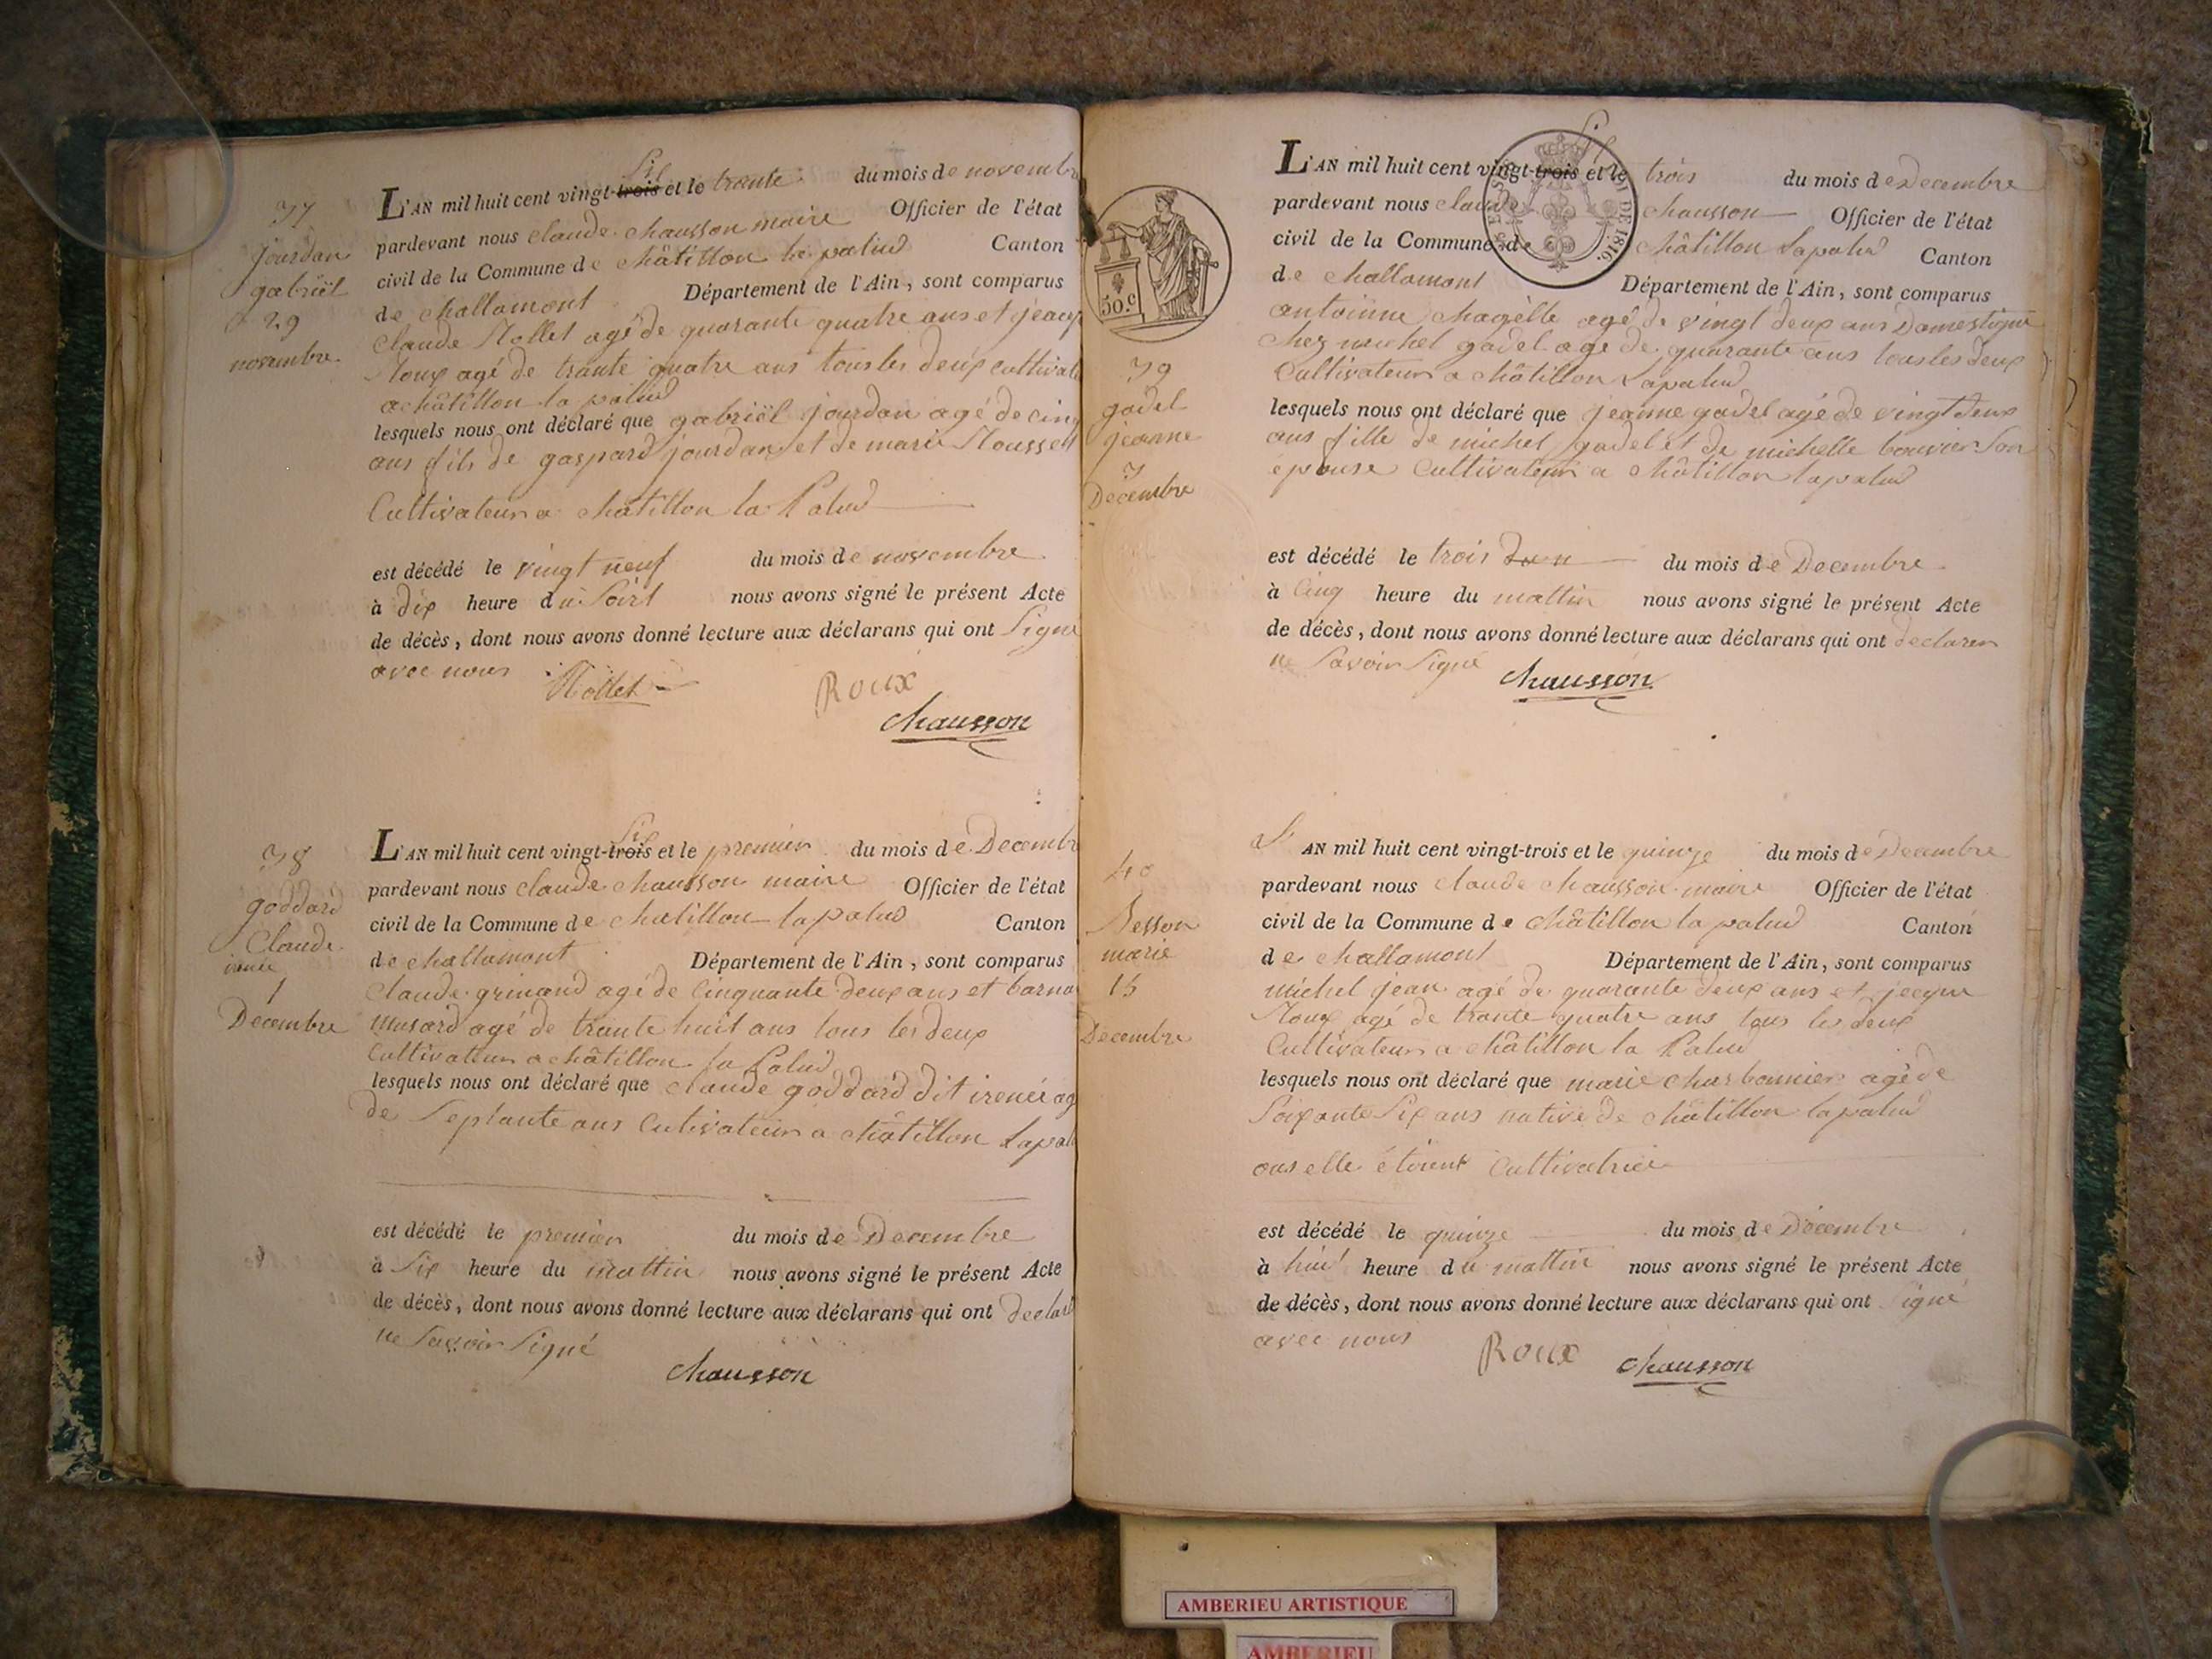 37
jourdan
gabriël
29
novembre
L'AN mil huit cent vingt-trois six et le trante du mois de novembr
pardevant nous claude chausson maire Officier de l'état
civil de la Commune de châtillon la palud Canton
de challamont Département de l'Ain, sont comparus
claude Rollet agé de quarante quatre ans et
Roux agé de trante quatre ans tous les deux cultivat
a châtillon la palud
lesquels nous ont déclaré que gabriël jourdan agé de cinq
ans fils de gaspard jourdan et de marie Roussell
Cultivateur a châtillon la Palud
est décédé le vingt neuf du mois de novembre
à dix heure du Soirt nous avons signé le présent Acte
de décès, dont nous avons donné lecture aux déclarans qui ont Signé
avec nous Rollet Roux
chausson
38
goddard
Claude
irénée
1
Decembre
L'AN mil huit cent vingt-trois Six et le premier du mois de Decembr
pardevant nous claude chausson maire Officier de l'état
civil de la Commune de châtillon la palud Canton
de challamont Département de l'Ain, sont comparus
claude grinand agé de Cinquante deux ans et
musard agé de trante huit ans tous les deux
Cultivateur a châtillon la Palud
lesquels nous ont déclaré que claude goddard dit irénée ag
de Septante ans Cultivateur a châtillon Lapal
est décédé le premier du mois de Decembre
à Six heure du mattin nous avons signé le présent Acte
de décès, dont nous avons donné lecture aux déclarans qui ont declar
ne Savoir Signé
chausson
50.c
39
gadel
jeanne
3
Decembre
L'AN mil huit cent vingt-trois et le trois du mois de Decembre
pardevant nous claude chausson Officier de l'état
civil de la Commune de châtillon Lapalud Canton
de challamont Département de l'Ain, sont comparus
DE 1816.
antoinne chagèlle agé de vingt deux ans Domestique
chez michel gadel agé de quarante ans tous les deux
Cultivateur a châtillon Lapalud
lesquels nous ont déclaré que jeanne gadel agé de vingt deux
ans fille de michel gadel et de michelle bouvier Son
épouse Cultivateur a châtillon lapalud
est décédé le trois du mois de Decembre
à Cinq heure du mattin nous avons signé le présent Acte
de décès, dont nous avons donné lecture aux déclarans qui ont declarer
ne Savoir Signé chausson
40
Besson
marie
15
Decembre
L'AN mil huit cent vingt-trois et le quinze du mois de Decembre
pardevant nous claude chausson maire Officier de l'état
civil de la Commune de châtillon la palud Canton
de challamont Département de l'Ain, sont comparus
michel jean agé de quarante deux ans et
Roux agé de trante quatre ans tous les deux
Cultivateur a châtillon la Palud
lesquels nous ont déclaré que marie charbonnier agé de
Soixante Six ans native de châtillon lapalud
elle étoient Cultivatrice
est décédé le quinze du mois de Décembre
à huit heure du mattin nous avons signé le présent Acte
de décès, dont nous avons donné lecture aux déclarans qui ont Signé
avec nous Roux chausson
AMBERIEU ARTISTIQUE
AMBERIEU